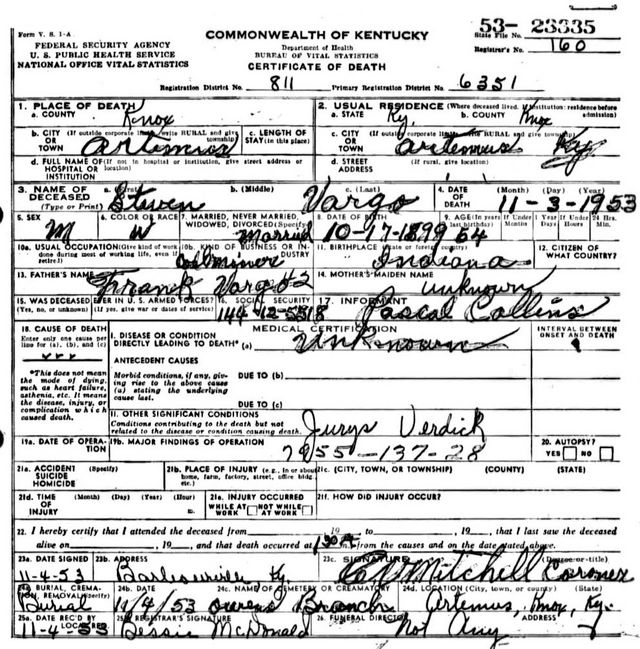 Form V. S. 1-A
COMMONWEALTH OF KENTUCKY
53- 23335
State File No.
FEDERAL SECURITY AGENCY
Department of Health
Registrar's No. 160
U. S. PUBLIC HEALTH SERVICE
BUREAU OF VITAL STATISTICS
NATIONAL OFFICE VITAL STATISTICS
CERTIFICATE OF DEATH
Registration District No. 811 Primary Registration District No. 6351
1. PLACE OF DEATH
2. USUAL RESIDENCE (Where deceased lived. If institution: residence before admission).
a. COUNTY Knox
a. STATE Ky. b. COUNTY Knox
b. CITY (If outside corporate limits, write RURAL and give township) OR TOWN Artemus
c. LENGTH OF STAY (in this place)
c. CITY (If outside corporate limits, write RURAL and give township) OR TOWN Artemus Ky.
d. FULL NAME OF (If not in hospital or institution, give street address or location) HOSPITAL OR INSTITUTION
d. STREET ADDRESS (If rural, give location)
3. NAME OF DECEASED (Type or Print) a. (First) Steven b. (Middle) c. (Last) Vargo
4. DATE OF DEATH (Month) (Day) (Year) 11-3-1953
5. SEX M
6. COLOR OR RACE W
7. MARRIED, NEVER MARRIED, WIDOWED, DIVORCED (Specify) Married
8. DATE OF BIRTH 10-17-1899
9. AGE (In years last birthday) 54 If Under 1 Year Months Days If Under 24 Hrs. Hours Min.
10a. USUAL OCCUPATION (Give kind of work done during most of working life, even if retired) Coal Miner
10b. KIND OF BUSINESS OR INDUSTRY
11. BIRTHPLACE (State or foreign country) Indiana
12. CITIZEN OF WHAT COUNTRY?
13. FATHER'S NAME Frank Vargo
14. MOTHER'S MAIDEN NAME Unknown
15. WAS DECEASED EVER IN U. S. ARMED FORCES? (Yes, no, or unknown) (If yes, give war or dates of service)
16. SOCIAL SECURITY
17. INFORMANT Pascal Collins
18. CAUSE OF DEATH
MEDICAL CERTIFICATION
INTERVAL BETWEEN ONSET AND DEATH
Enter only one cause per line for (a), (b), and (c)
I. DISEASE OR CONDITION DIRECTLY LEADING TO DEATH* (a) Unknown
*This does not mean the mode of dying, such as heart failure, asthenia, etc. It means the disease, injury, or complication which caused death.
ANTECEDENT CAUSES
Morbid conditions, if any, giving rise to the above cause (a) stating the underlying cause last.
DUE TO (b)
DUE TO (c)
II. OTHER SIGNIFICANT CONDITIONS
Conditions contributing to the death but not related to the disease or condition causing death.
Jurys Verdick
19a. DATE OF OPERATION
19b. MAJOR FINDINGS OF OPERATION
7955-137-28
20. AUTOPSY? YES NO
21a. ACCIDENT SUICIDE HOMICIDE (Specify)
21b. PLACE OF INJURY (e.g., in or about home, farm, factory, street, office bldg., etc.)
21c. (CITY, TOWN, OR TOWNSHIP) (COUNTY) (STATE)
21d. TIME OF INJURY (Month) (Day) (Year) (Hour) m.
21e. INJURY OCCURRED WHILE AT WORK NOT WHILE AT WORK
21f. HOW DID INJURY OCCUR?
22. I hereby certify that I attended the deceased from 19 to , 19 , that I last saw the deceased
alive on , 19 , and that death occurred at m., from the causes and on the date stated above.
23a. DATE SIGNED 11-4-53
23b. ADDRESS Barbourville Ky.
23c. SIGNATURE Mitchell Coroner (Degree or title)
24a. BURIAL, CREMATION, REMOVAL (Specify) Burial
24b. DATE 11/4/53
24c. NAME OF CEMETERY OR CREMATORY Owens Branch
24d. LOCATION (City, town, or county) (State) Artemus, Knox, Ky.
25a. DATE REC'D BY LOCAL REG. 11-4-53
25b. REGISTRAR'S SIGNATURE Bessie McDonald
26. FUNERAL DIRECTOR Not Any ADDRESS